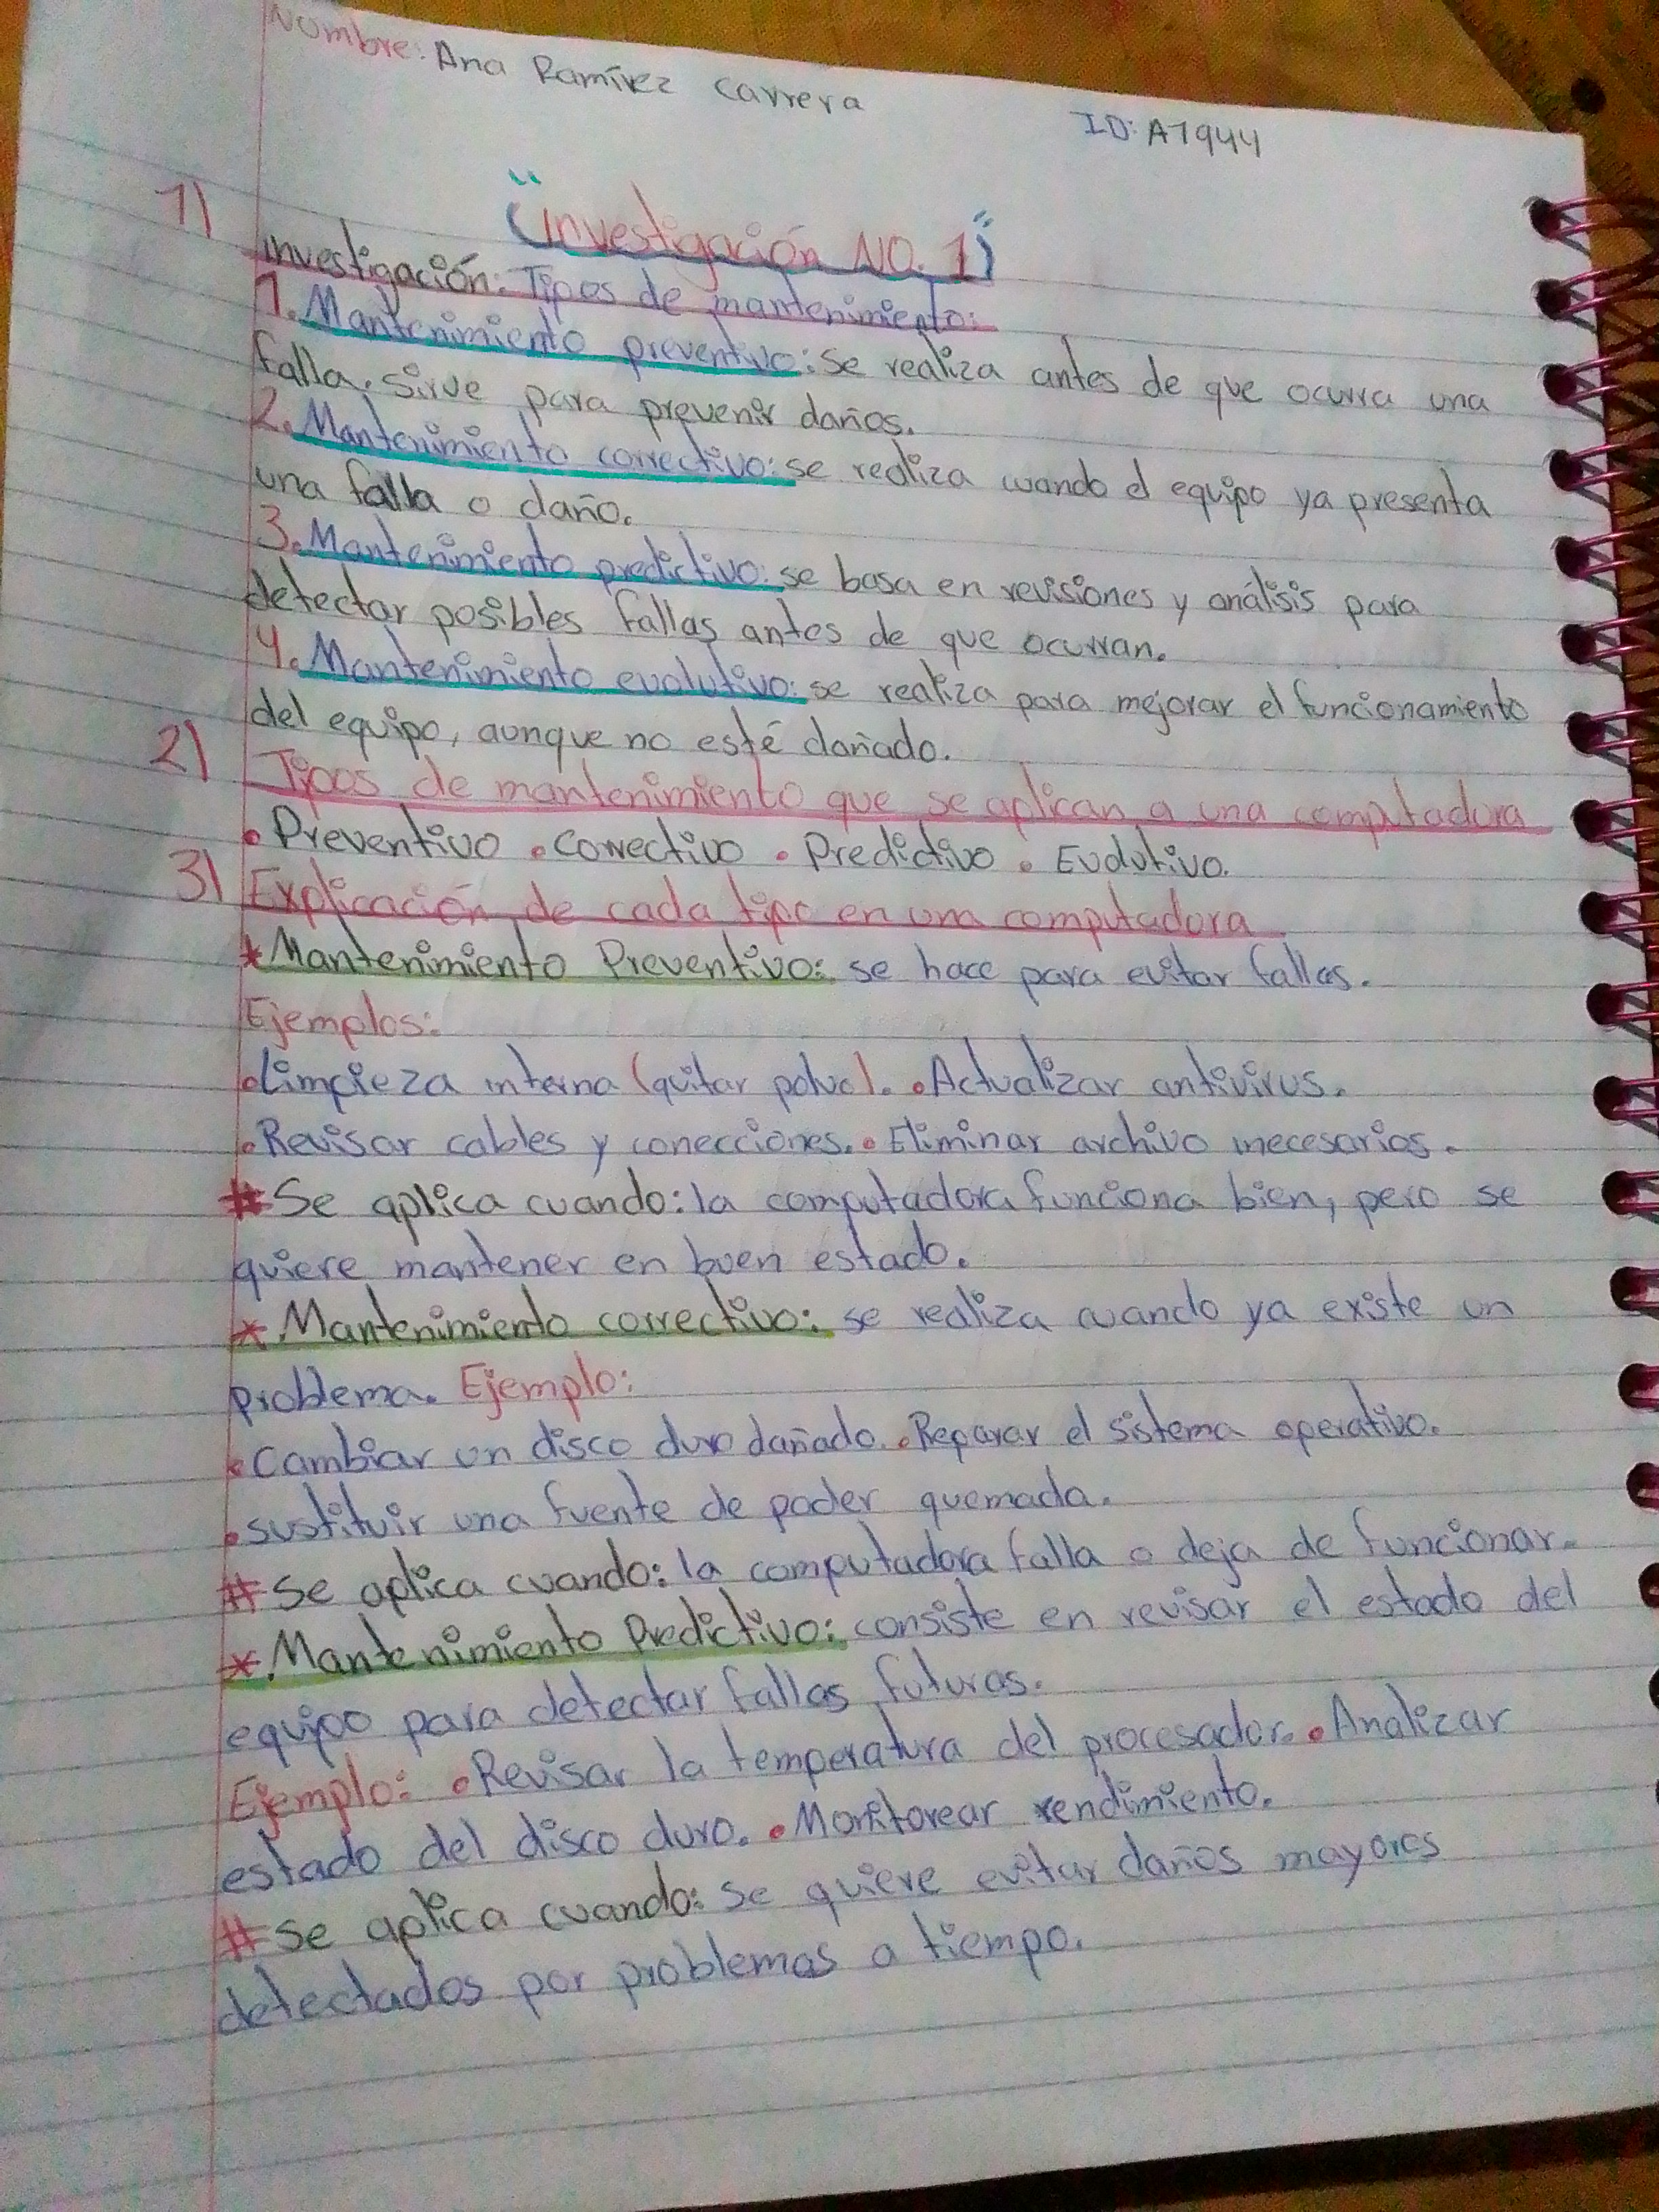 Nombre: Ana Ramírez Carrera
ID: A7944
"Investigación NO. 1"
1) investigación: Tipos de mantenimiento:
1. Mantenimiento preventivo: se realiza antes de que ocurra una
falla. Sirve para prevenir daños.
2. Mantenimiento correctivo: se realiza cuando el equipo ya presenta
una falla o daño.
3. Mantenimiento predictivo: se basa en revisiones y análisis para
detectar posibles fallas antes de que ocurran.
4. Mantenimiento evolutivo: se realiza para mejorar el funcionamiento
del equipo, aunque no esté dañado.
2) Tipos de mantenimiento que se aplican a una computadora
• Preventivo • Correctivo • Predictivo • Evolutivo.
3) Explicación de cada tipo en una computadora
* Mantenimiento Preventivo: se hace para evitar fallas.
Ejemplos:
• Limpieza interna (quitar polvo). • Actualizar antivirus.
• Revisar cables y conecciones. • Eliminar archivo inecesarios.
# Se aplica cuando: la computadora funciona bien, pero se
quiere mantener en buen estado.
* Mantenimiento correctivo: se realiza cuando ya existe un
problema. Ejemplo:
• Cambiar un disco duro dañado. • Reparar el sistema operativo.
• sustituir una fuente de poder quemada.
# Se aplica cuando: la computadora falla o deja de funcionar.
* Mantenimiento Predictivo: consiste en revisar el estado del
equipo para detectar fallas futuras.
Ejemplo: • Revisar la temperatura del procesador. • Analizar
estado del disco duro. • Monitorear rendimiento.
# Se aplica cuando: se quiere evitar daños mayores
detectados por problemas a tiempo.